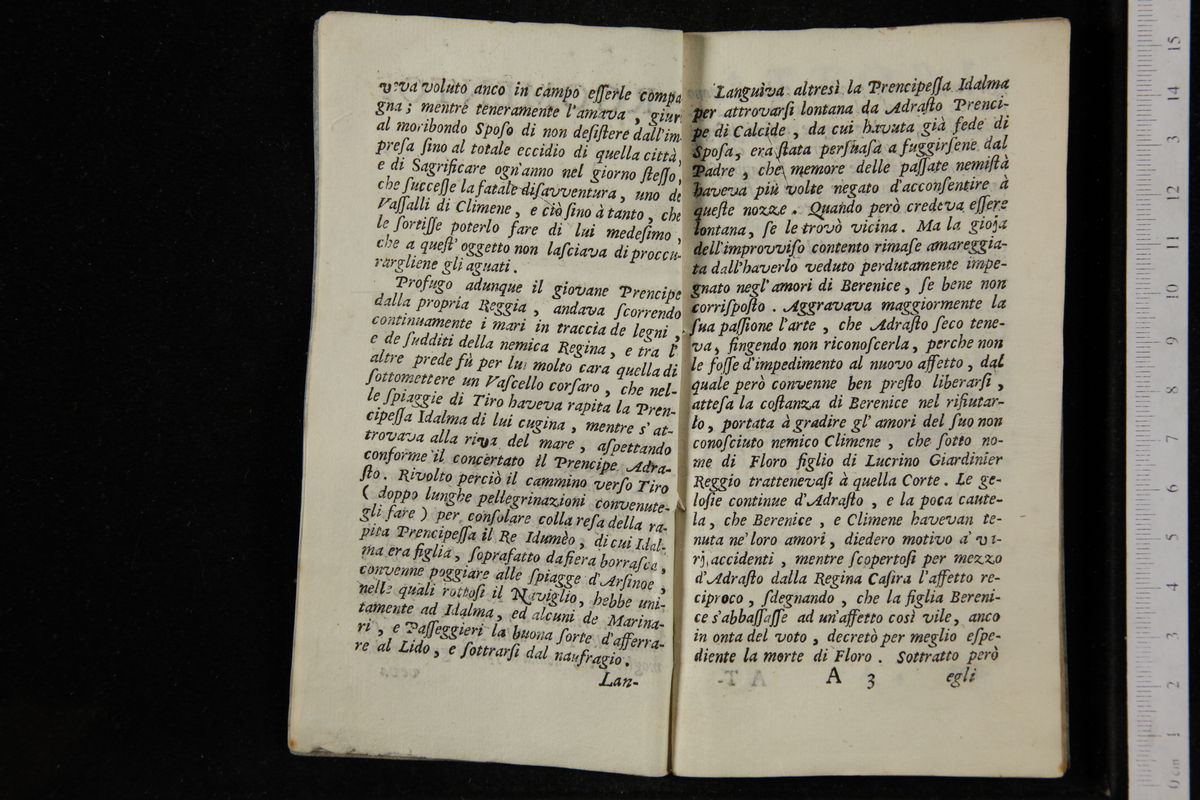 veva voluto anco in campo eſſerle compa
gna; mentre teneramente l'amava, giur
al moribondo Spoſo di non deſiſtere dall'im
preſa ſino al totale eccidio di quella città,
e di Sagrificare ogn'anno nel giorno ſteſſo,
che ſucceſſe la fatale diſavventura, uno de
Vaſſalli di Climene, e ciò ſino à tanto, che
le ſortiſſe poterlo fare di lui medeſimo,
che a queſt'oggetto non laſciava di proccu-
rargliene gli aguati.
Profugo adunque il giovane Prencipe
dalla propria Reggia, andava ſcorrendo
continuamente i mari in traccia de legni,
e de ſudditi della nemica Regina, e tra l'
altre prede fù per lui molto cara quella di
ſottomettere un Vaſcello corſaro, che nel-
le ſpiaggie di Tiro haveva rapita la Pren-
cipeſſa Idalma di lui cugina, mentre s'at-
trovava alla riva del mare, aſpettando
conforme il concertato il Prencipe Adra-
ſto. Rivolto perciò il cammino verſo Tiro
( doppo lunghe pellegrinazioni convenute-
gli fare ) per conſolare colla reſa della ra-
pita Prencipeſſa il Re Idumèo, di cui Idal-
ma era figlia, ſoprafatto da fiera borraſca,
convenne poggiare alle ſpiagge d'Arſinoe,
nelle quali rottoſi il Naviglio, hebbe uni-
tamente ad Idalma, ed alcuni de Marina-
ri, e Paſſeggieri la buona ſorte d'afferra-
re al Lido, e ſottrarſi dal naufragio.
Lan-
Languiva altresì la Prencipeſſa Idalma
per attrovarſi lontana da Adraſto Prenci-
pe di Calcide, da cui havuta già fede di
Spoſa, era ſtata perſuaſa a fuggirſene dal
Padre, che memore delle paſſate nemiſtà
haveva più volte negato d'acconſentire à
queſte nozze. Quando però credeva eſſere
lontana, ſe le trovò vicina. Ma la gioja
dell'improvviſo contento rimaſe amareggia-
ta dall'haverlo veduto perdutamente impe-
gnato negl'amori di Berenice, ſe bene non
corriſpoſto. Aggravava maggiormente la
ſua paſſione l'arte, che Adraſto ſeco tene-
va, fingendo non riconoſcerla, perche non
le foſſe d'impedimento al nuovo affetto, dal
quale però convenne ben preſto liberarſi,
atteſa la coſtanza di Berenice nel rifiutar-
lo, portata à gradire gl'amori del ſuo non
conoſciuto nemico Climene, che ſotto no-
me di Floro figlio di Lucrino Giardinier
Reggio trattenevaſi à quella Corte. Le ge-
loſie continue d'Adraſto, e la poca caute-
la, che Berenice, e Climene havevan te-
nuta ne'loro amori, diedero motivo a' va-
rj accidenti, mentre ſcopertoſi per mezzo
d'Adraſto dalla Regina Caſira l'affetto re-
ciproco, ſdegnando, che la figlia Bereni-
ce s'abbaſſaſſe ad un'affetto così vile, anco
in onta del voto, decretò per meglio eſpe-
diente la morte di Floro. Sottratto però
A 3 egli
15
14
13
12
11
10
9
8
7
6
5
4
3
2
1
0 cm